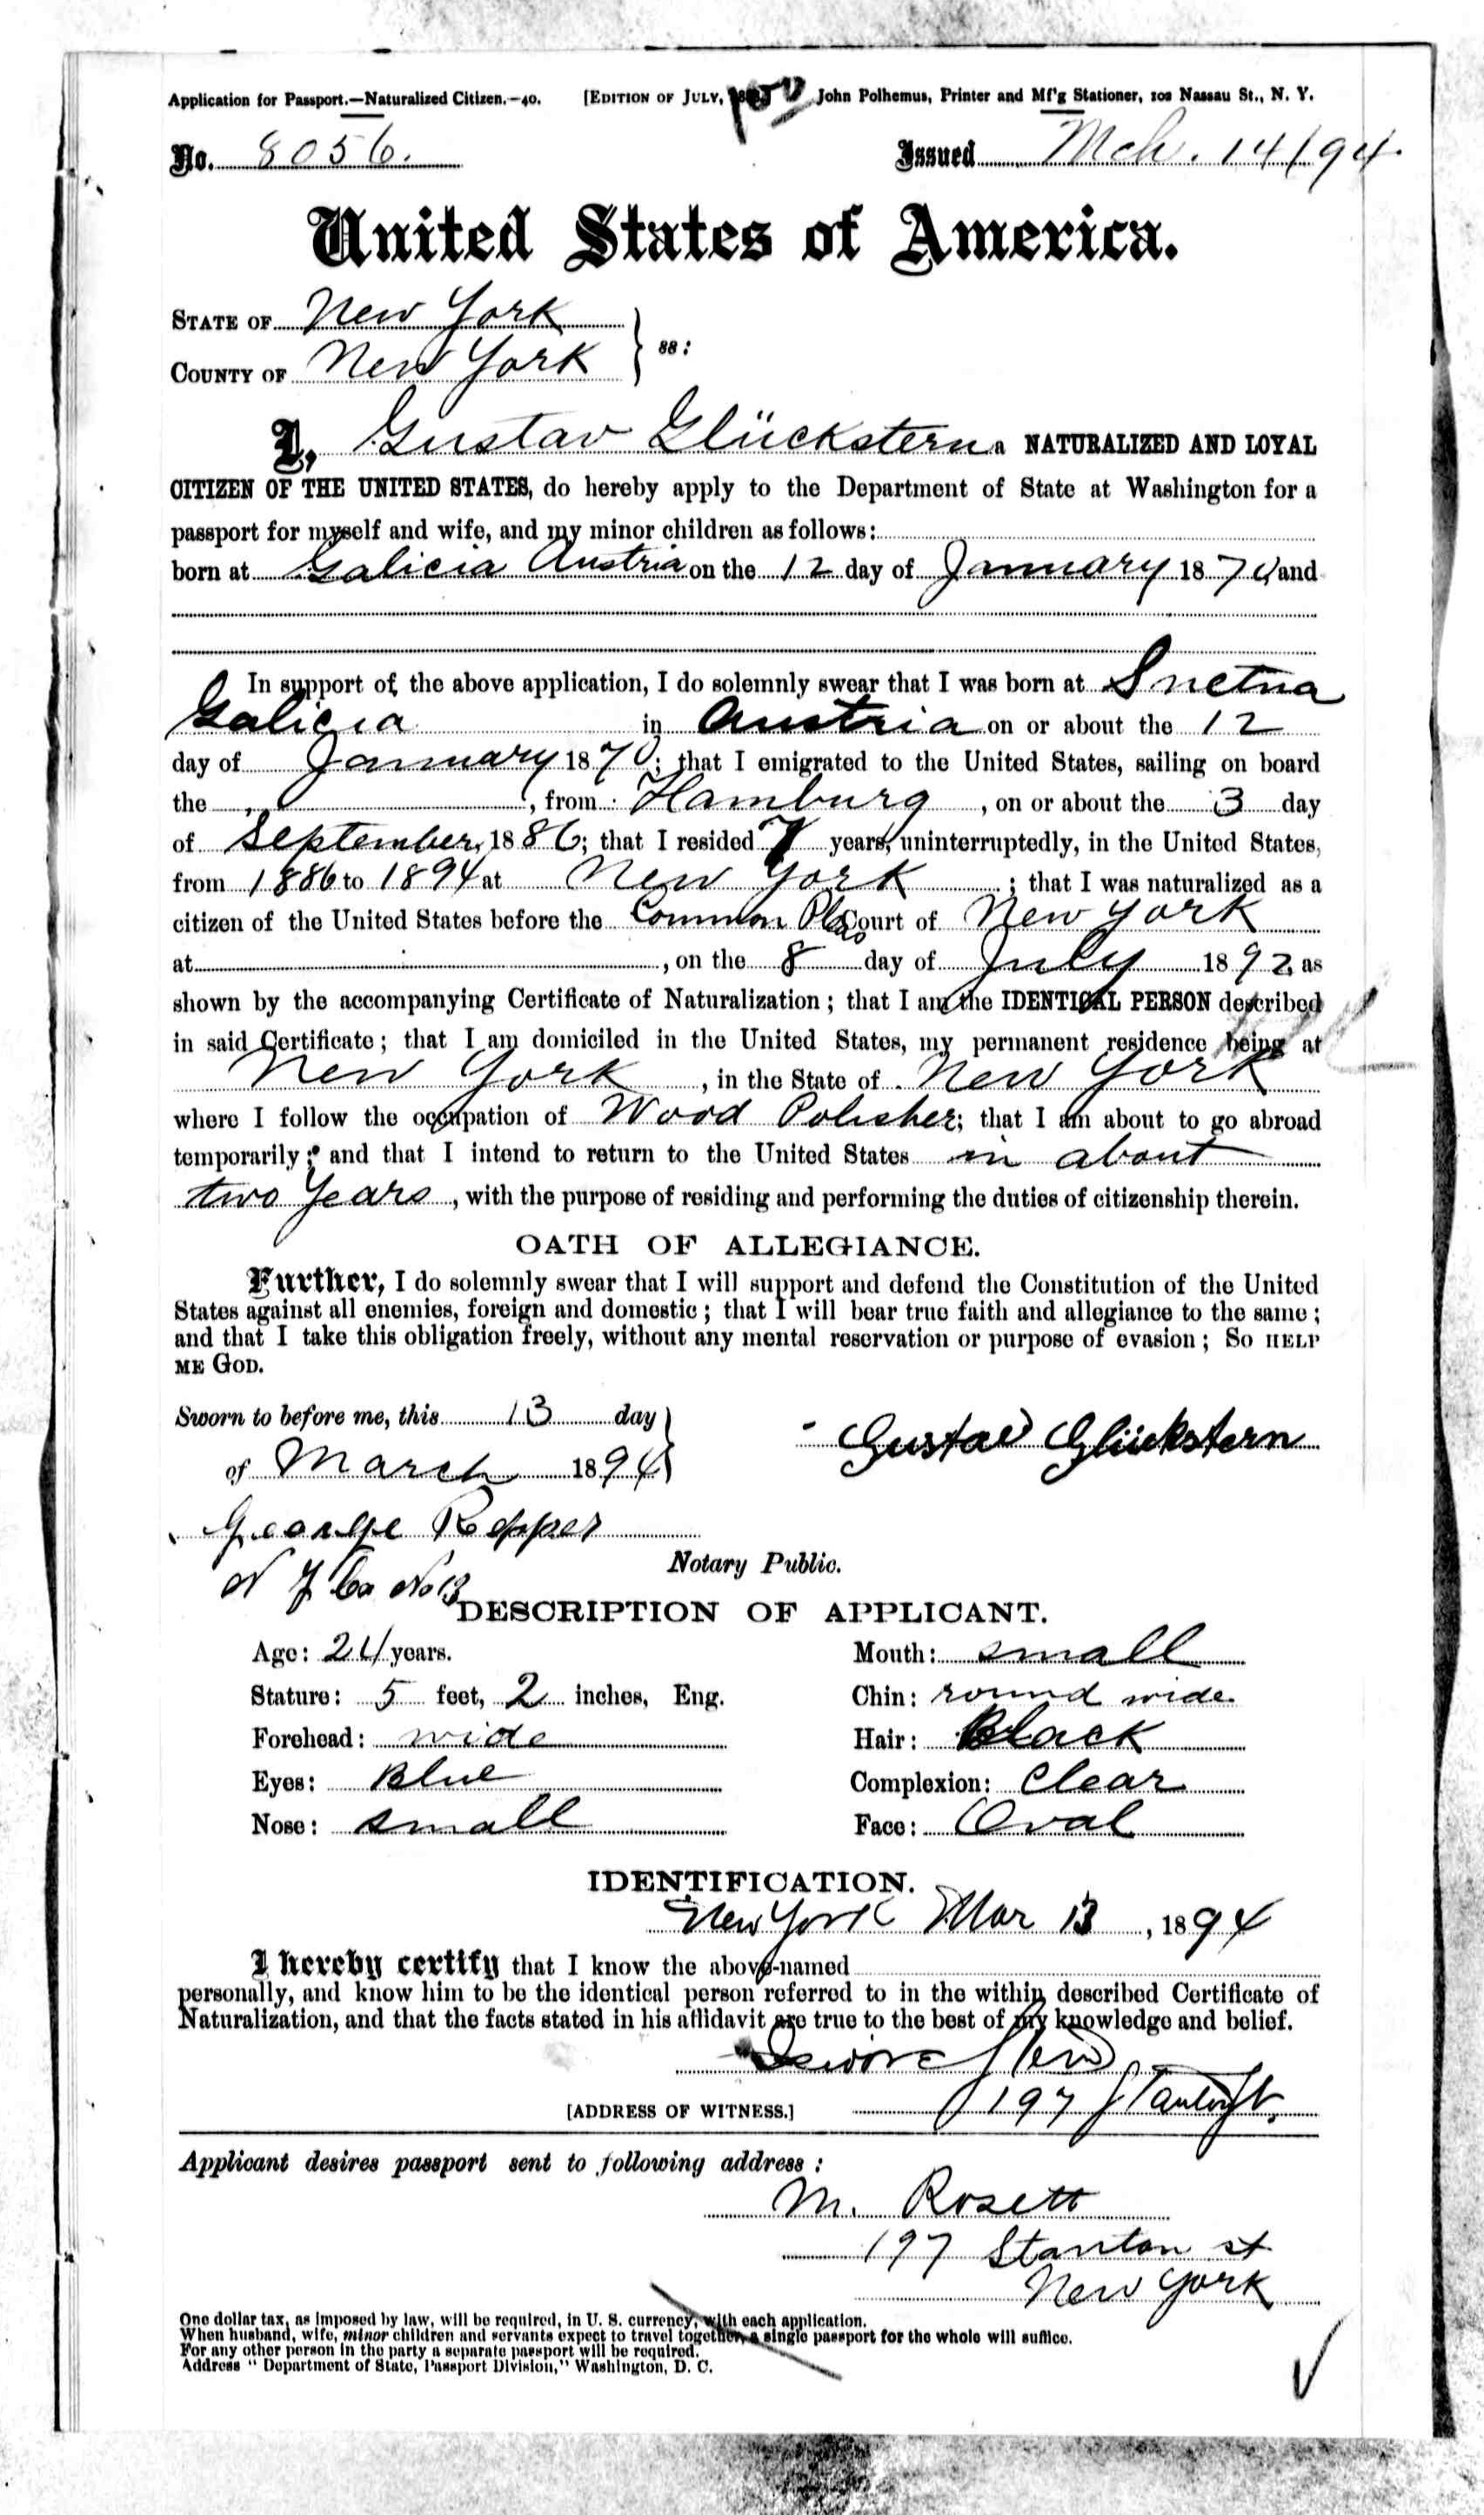 Application for Passport.—Naturalized Citizen.—40. [EDITION OF JULY, John Polhemus, Printer and Mf'g Stationer, 102 Nassau St., N. Y.
No. 8056. Issued Mch. 14/94.
United States of America.
STATE OF New York
COUNTY OF New York } ss:
I, Gustav Glückstern a NATURALIZED AND LOYAL
CITIZEN OF THE UNITED STATES, do hereby apply to the Department of State at Washington for a
passport for myself and wife, and my minor children as follows:
born at Galicia Austria on the 12 day of January 1870, and
In support of the above application, I do solemnly swear that I was born at Snetna
Galicia in Austria on or about the 12
day of January 1870; that I emigrated to the United States, sailing on board
the , from Hamburg, on or about the 3 day
of September, 1886; that I resided 7 years, uninterruptedly, in the United States,
from 1886 to 1894 at New York; that I was naturalized as a
citizen of the United States before the Common Pleas Court of New York
at , on the 8 day of July 1892, as
shown by the accompanying Certificate of Naturalization; that I am the IDENTICAL PERSON described
in said Certificate; that I am domiciled in the United States, my permanent residence being at
New York, in the State of New York
where I follow the occupation of Wood Polisher; that I am about to go abroad
temporarily; and that I intend to return to the United States in about
two years, with the purpose of residing and performing the duties of citizenship therein.
OATH OF ALLEGIANCE.
Further, I do solemnly swear that I will support and defend the Constitution of the United
States against all enemies, foreign and domestic; that I will bear true faith and allegiance to the same;
and that I take this obligation freely, without any mental reservation or purpose of evasion; SO HELP
ME GOD.
Sworn to before me, this 13 day
of March 1894 Gustav Glückstern
George Repper
Notary Public.
N Y Co No 13
DESCRIPTION OF APPLICANT.
Age: 24 years. Mouth: small
Stature: 5 feet, 2 inches, Eng. Chin: round wide.
Forehead: wide Hair: Black
Eyes: Blue Complexion: Clear
Nose: small Face: Oval
IDENTIFICATION.
New York Mar 13, 1894
I hereby certify that I know the above-named
personally, and know him to be the identical person referred to in the within described Certificate of
Naturalization, and that the facts stated in his affidavit are true to the best of my knowledge and belief.
[ADDRESS OF WITNESS.] 197 Stanton St.
Applicant desires passport sent to following address:
M. Rosett
197 Stanton st
New York
One dollar tax, as imposed by law, will be required, in U. S. currency, with each application.
When husband, wife, minor children and servants expect to travel together, a single passport for the whole will suffice.
For any other person in the party a separate passport will be required.
Address "Department of State, Passport Division," Washington, D. C.